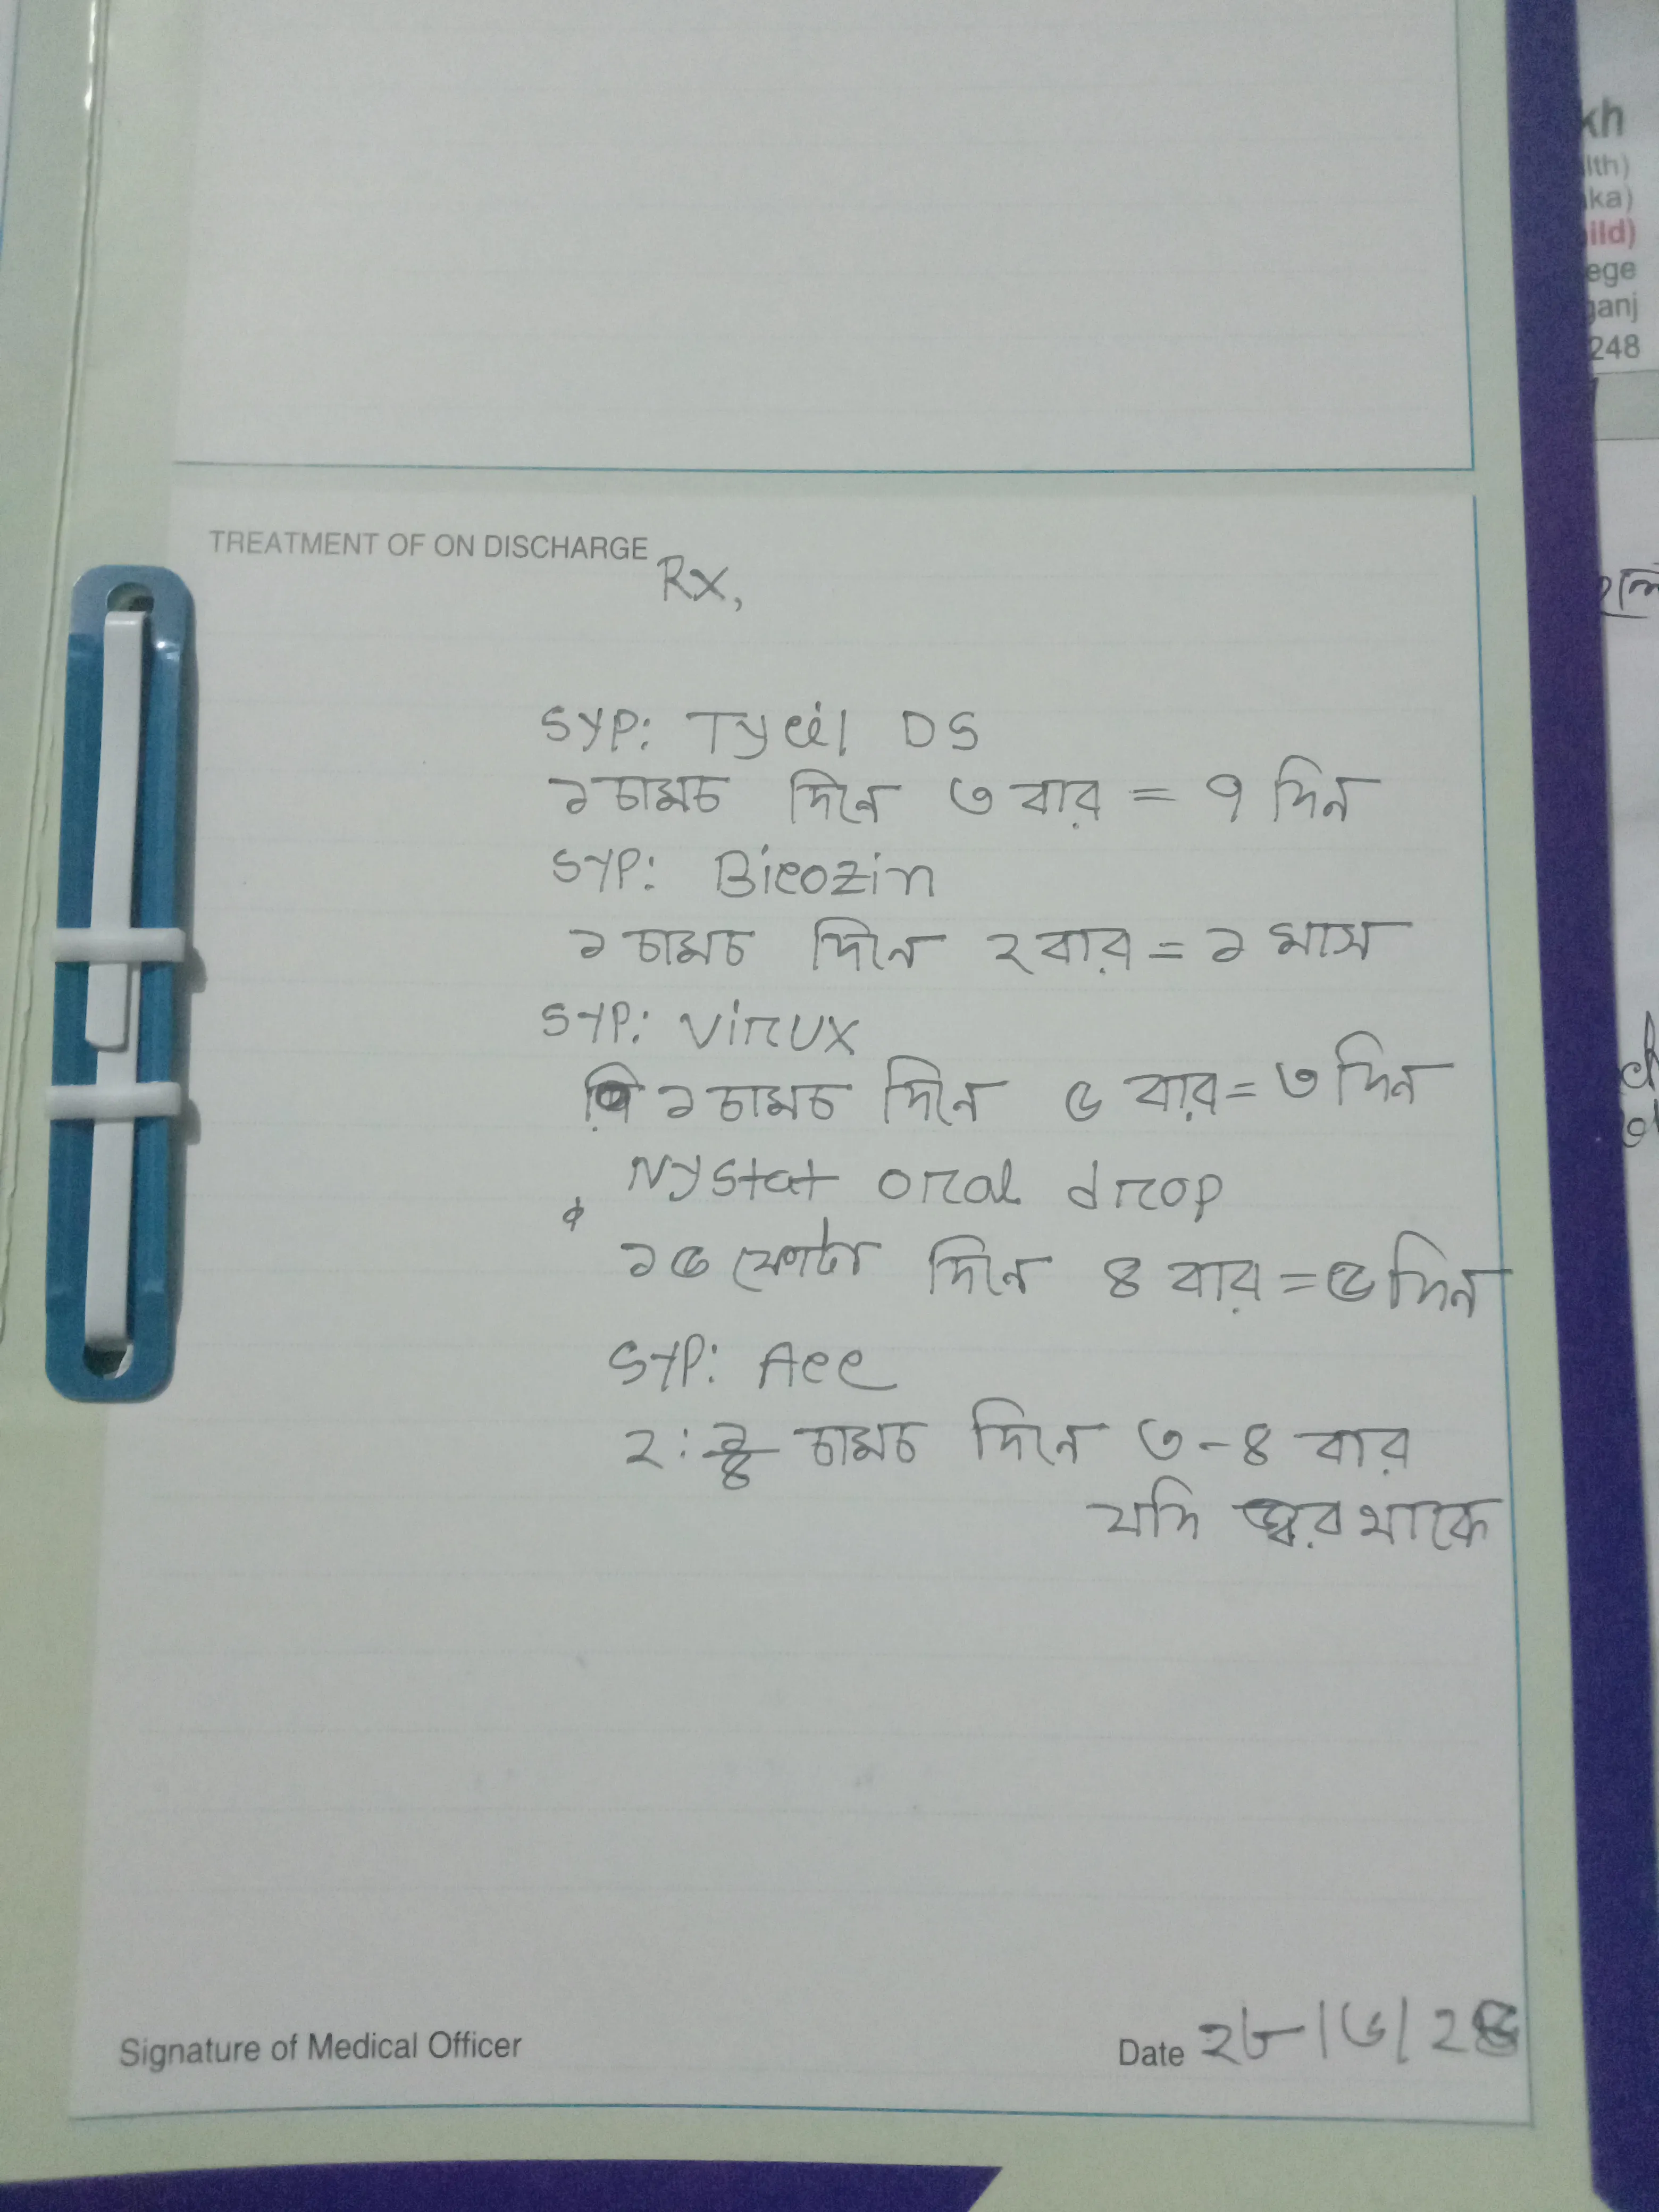 kh
lth)
ka)
ild)
ege
ganj
248
TREATMENT OF ON DISCHARGE
Rx,
SYP: Tycil DS
১ চামচ দিনে ৩ বার = ৭ দিন
SYP: Bicozin
১ চামচ দিনে ২ বার = ১ মাস
SYP: Virux
১ চামচ দিনে ৫ বার = ৩ দিন
Nystat oral drop
১৫ ফোটা দিনে ৪ বার = ৫ দিন
SYP: Ace
চামচ দিনে ৩-৪ বার
যদি জ্বর থাকে
Signature of Medical Officer
Date